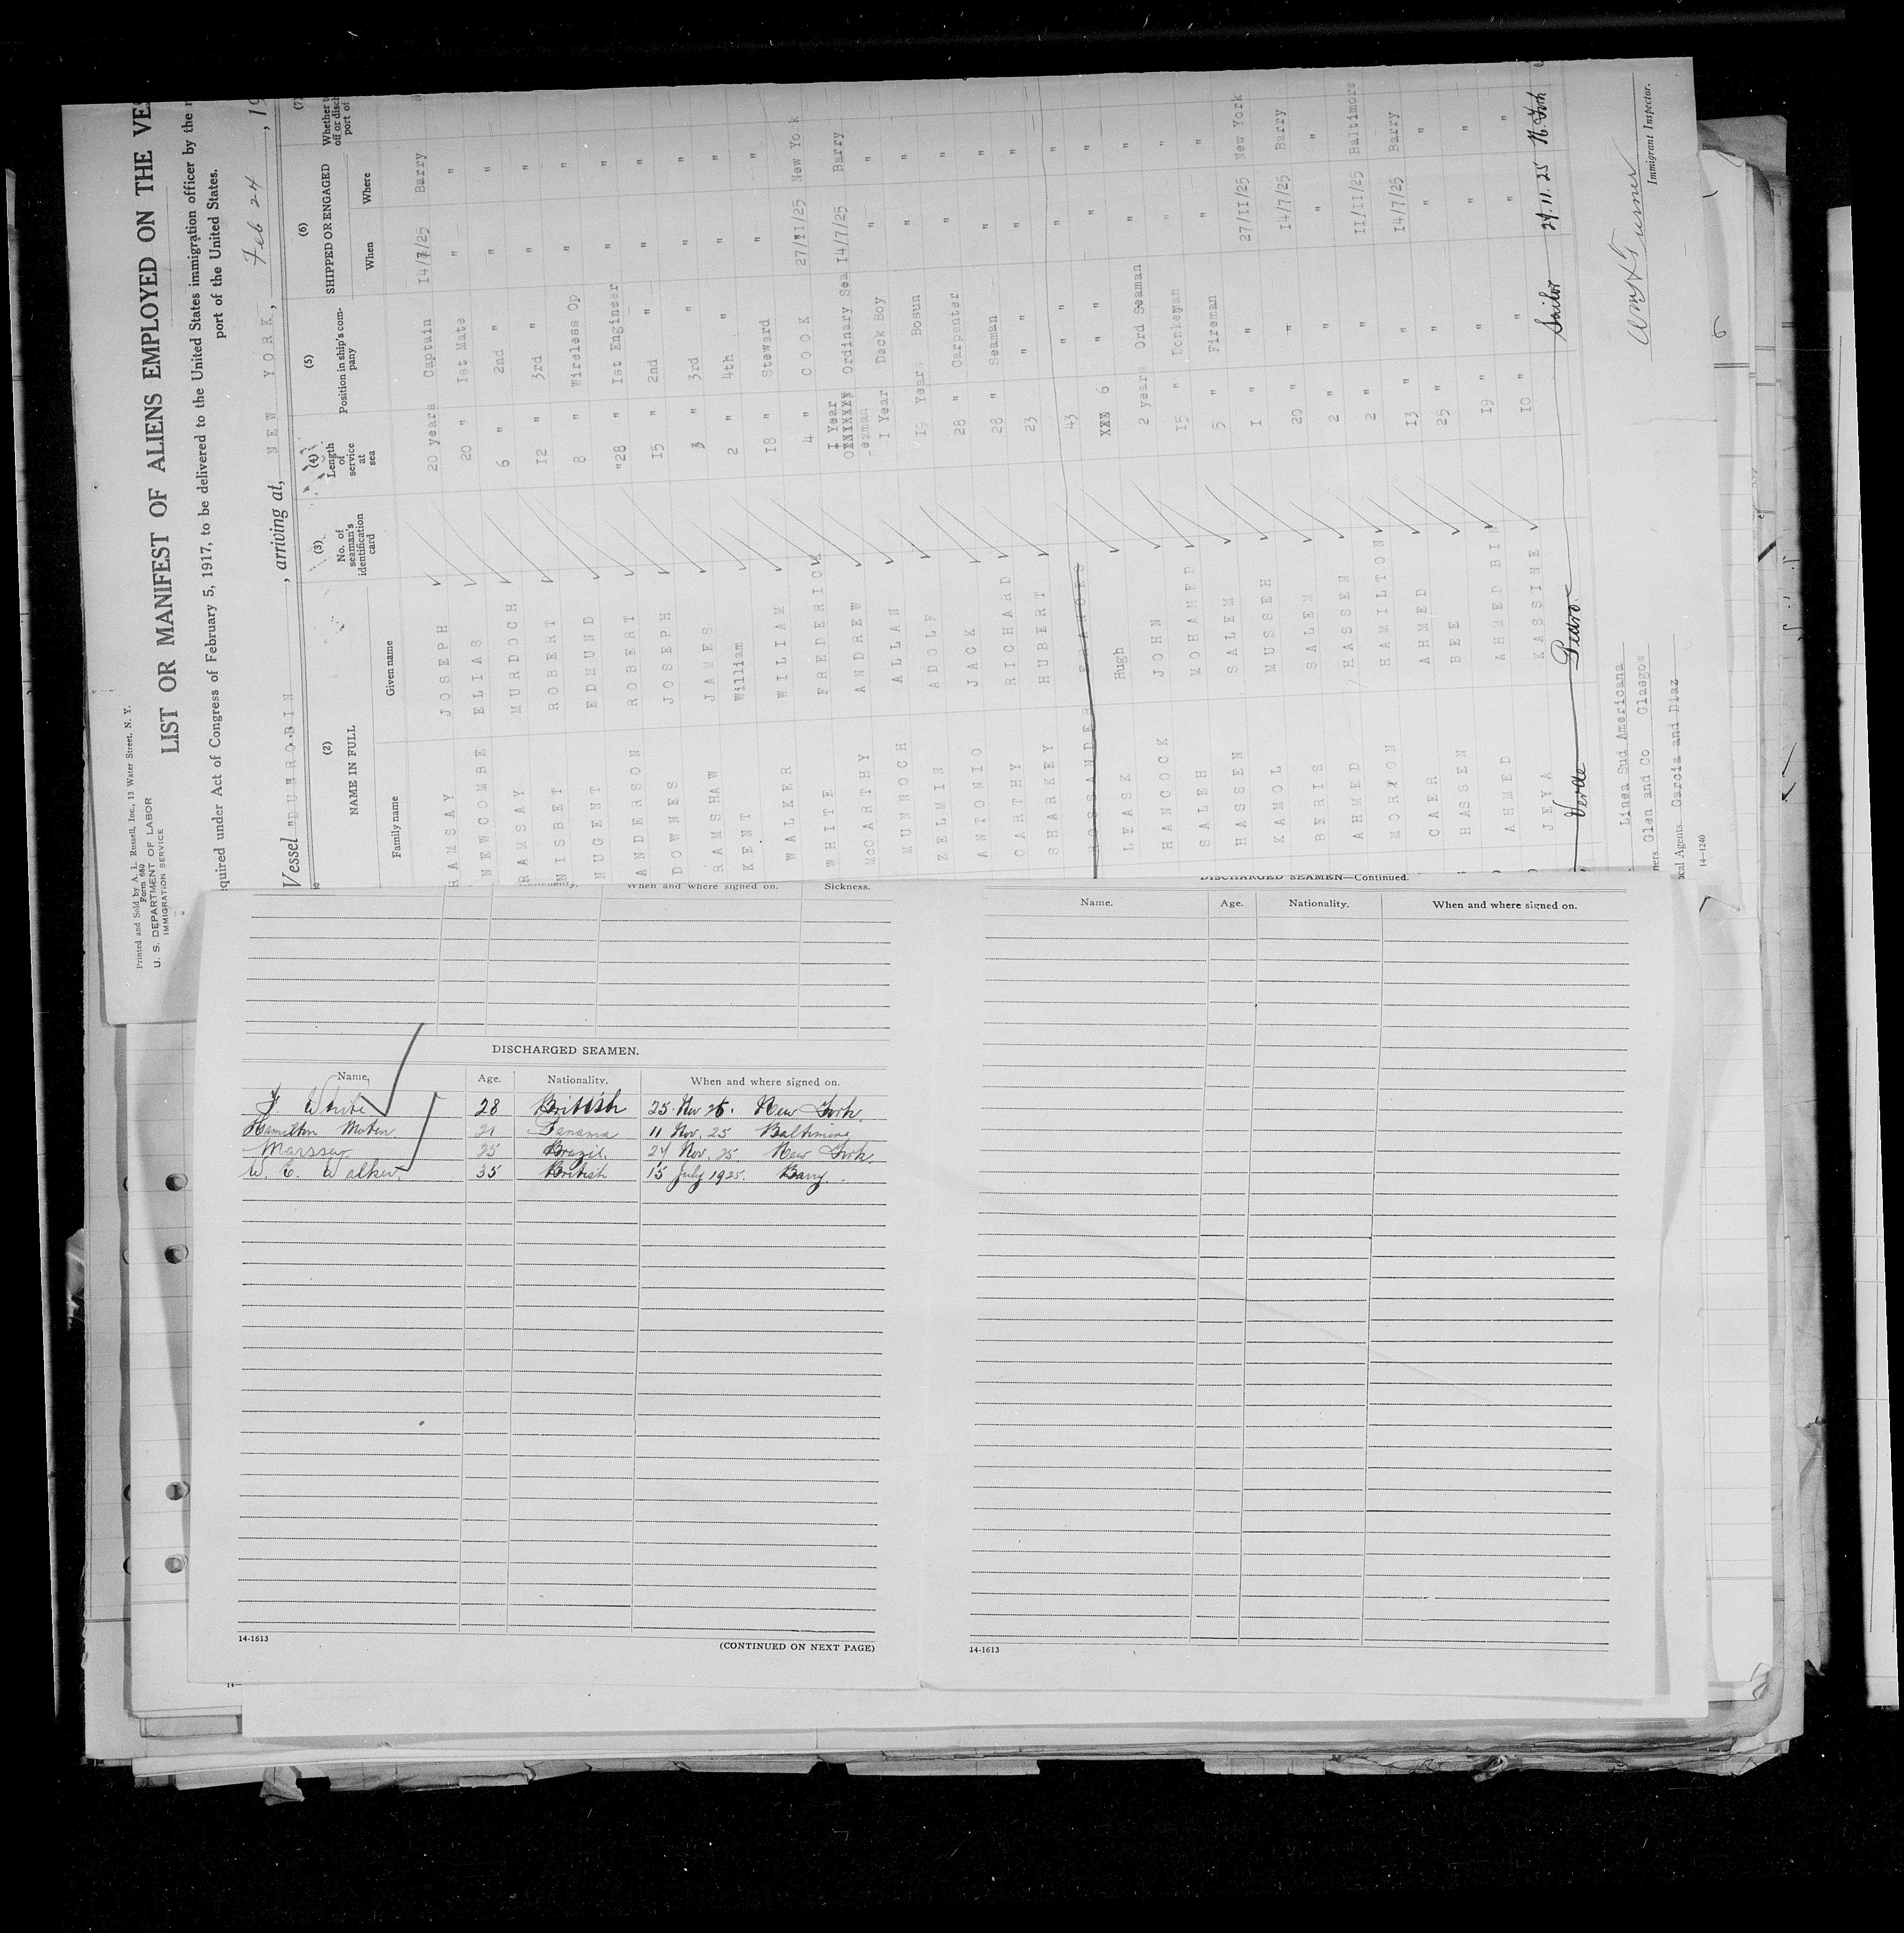 Printed and Sold by A. L. Russell, Inc., 13 Water Street, N. Y.
Form 680
U. S. DEPARTMENT OF LABOR
IMMIGRATION SERVICE
LIST OR MANIFEST OF ALIENS EMPLOYED ON THE VES
quired under Act of Congress of February 5, 1917, to be delivered to the United States immigration officer by the
port of the United States.
Vessel "DUNROBIN , arriving at, NEW YORK, Feb 24 , 19
(2) (3) (4) (5) (6) (7)
NAME IN FULL
No. of seaman's identification card
Length of service at sea
Position in ship's company
SHIPPED OR ENGAGED
Whether t
off or disch
port of
Family name Given name When Where
RAMSAY JOSEPH 20 years Captain 14/7/25 Barry
NEWCOMBE ELIAS 20 " 1st Mate " "
RAMSAY MURDOCH 6 " 2nd " " "
NISBET ROBERT 12 " 3rd " " "
NUGENT EDMUND 8 " Wireless Op " "
ANDERSON ROBERT "28 " 1st Engineer " "
DOWNES JOSEPH 15 " 2nd " " "
RAMSHAW JAMES 3 " 3rd " " "
KENT William 2 " 4th " " "
WALKER WILLIAM 18 " Steward " "
WHITE FREDERICK 4 " COOK 27/11/25 New York
McCARTHY ANDREW 1 Year Ordinary Sea 14/7/25 Barry
-eaman
MUNNOCH ALLAN 1 Year Deck Boy " "
ZELMIN ADOLF 19 Year Bosun " "
ANTONIO JACK 28 " Carpenter " "
CARTHY RICHARD 28 " Seaman " "
SHARKEY HUBERT 23 " " " "
ROSSANDER FRANCES 43 " " "
LEASK Hugh XXX 6 " " " "
HANCOCK JOHN 2 years Ord Seaman " "
SALEH MOHAMED 15 " Donkeyman " "
HASSEN SALEM 5 " Fireman " "
KAMOL MUSSEH 1 " " 27/11/25 New York
BERIS SALEM 20 " " 14/7/25 Barry
AHMED HASSEN 2 " " " "
MORTON HAMILTON 2 " " 11/11/25 Baltimore
CAER AHMED 13 " " 14/7/25 Barry
HASSEN BEE 25 " " " "
AHMED AHMED BIN 19 " " " "
JEYA KASSINE 10 " " " "
Verde Pedro Sailor 27.11.25 N. York
Linea Sud Americana
ners Glen and Co Glasgow
ocal Agents Garcia and Diaz
14—1240
Immigrant Inspector.
Nationality. When and where signed on. Sickness.
DISCHARGED SEAMEN.
Name. Age. Nationality. When and where signed on.
F White 28 British 25 Nov 25. New York.
Hamilton Morten 21 Panama 11 Nov. 25 Baltimore
Marssar 25 Brazil. 27 Nov. 25. New York.
W. E. Walker. 35 British 15 July 1925. Barry.
14-1613
(CONTINUED ON NEXT PAGE)
DISCHARGED SEAMEN—Continued.
Name. Age. Nationality. When and where signed on.
14-1613